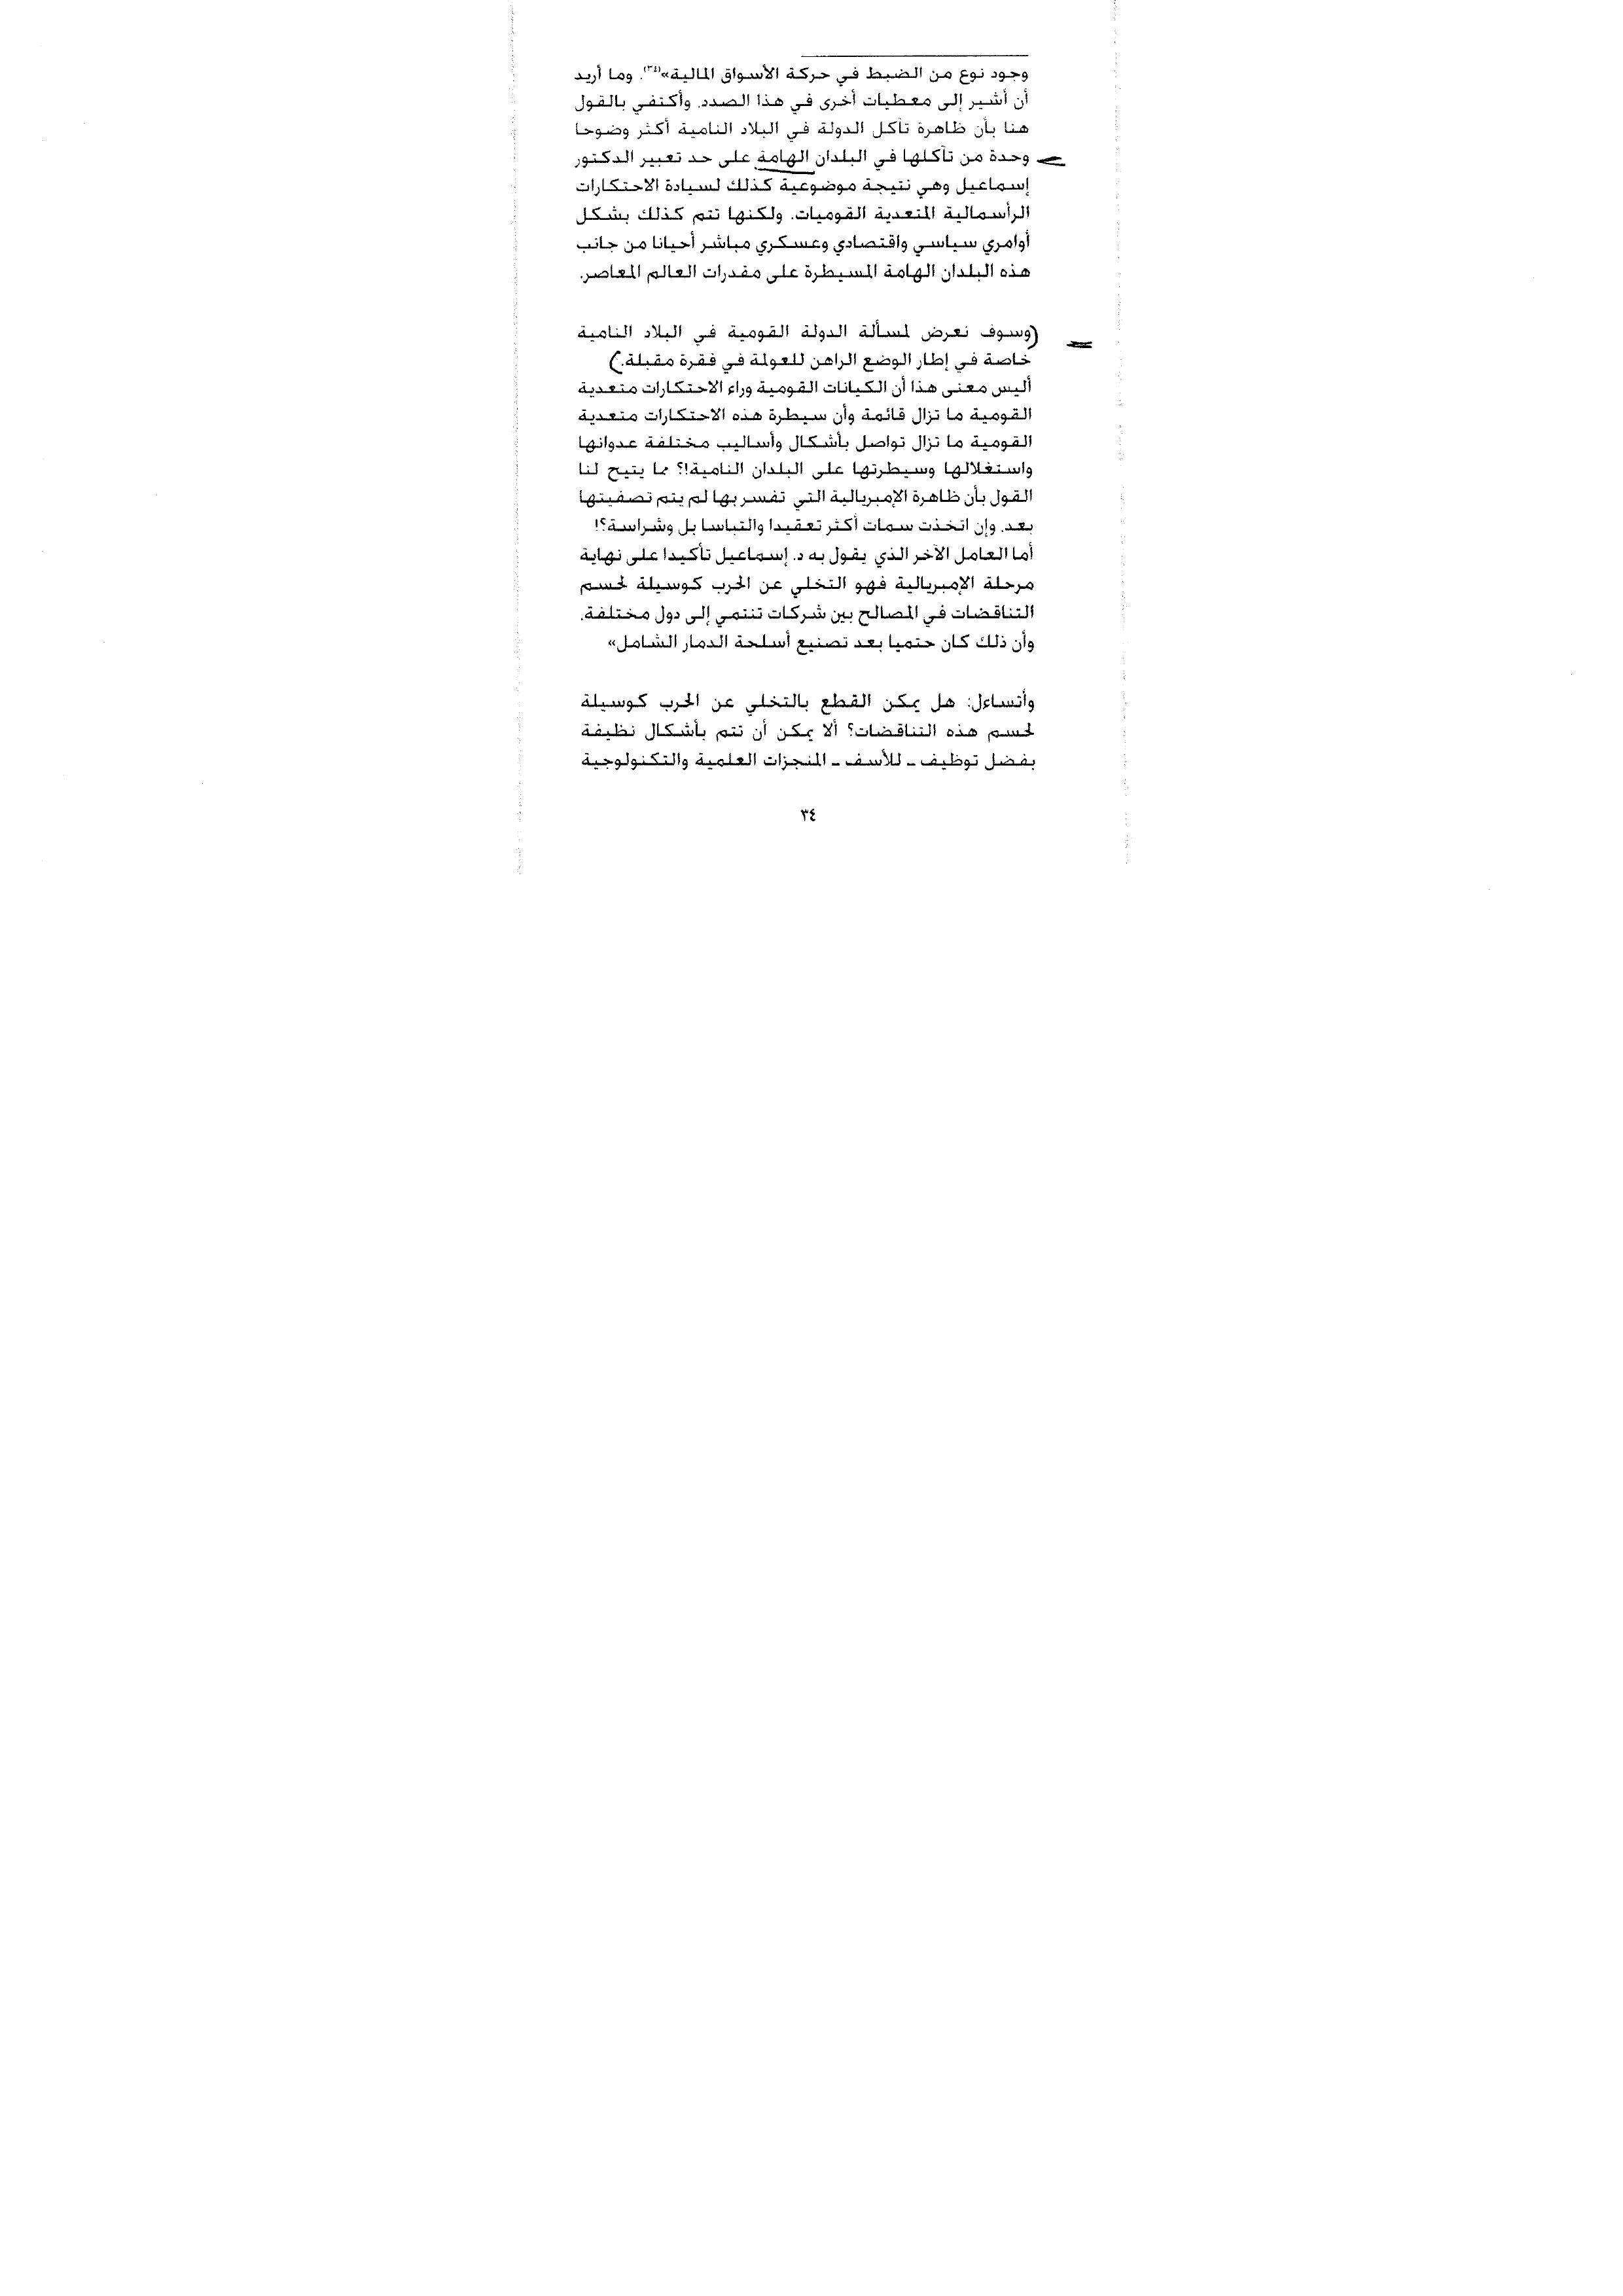 وجود نوع من الضبط في حركة الأسواق المالية»(٣٤). وما أريد
أن أشير إلى معطيات أخرى في هذا الصدد. وأكتفي بالقول
هنا بأن ظاهرة تآكل الدولة في البلاد النامية أكثر وضوحا
وحدة من تآكلها في البلدان الهامة على حد تعبير الدكتور
إسماعيل وهي نتيجة موضوعية كذلك لسيادة الاحتكارات
الرأسمالية المتعدية القوميات. ولكنها تتم كذلك بشكل
أوامري سياسي واقتصادي وعسكري مباشر أحيانا من جانب
هذه البلدان الهامة المسيطرة على مقدرات العالم المعاصر.
(وسوف نعرض لمسألة الدولة القومية في البلاد النامية
خاصة في إطار الوضع الراهن للعولمة في فقرة مقبلة.)
أليس معنى هذا أن الكيانات القومية وراء الاحتكارات متعدية
القومية ما تزال قائمة وأن سيطرة هذه الاحتكارات متعدية
القومية ما تزال تواصل بأشكال وأساليب مختلفة عدوانها
واستغلالها وسيطرتها على البلدان النامية!؟ مما يتيح لنا
القول بأن ظاهرة الإمبريالية التي تفسر بها لم يتم تصفيتها
بعد. وإن اتخذت سمات أكثر تعقيدا والتباسا بل وشراسة؟!
أما العامل الآخر الذي يقول به د. إسماعيل تأكيدا على نهاية
مرحلة الإمبريالية فهو التخلي عن الحرب كوسيلة لحسم
التناقضات في المصالح بين شركات تنتمي إلى دول مختلفة.
وأن ذلك كان حتميا بعد تصنيع أسلحة الدمار الشامل»
وأتساءل: هل يمكن القطع بالتخلي عن الحرب كوسيلة
لحسم هذه التناقضات؟ ألا يمكن أن تتم بأشكال نظيفة
بفضل توظيف ـ للأسف ـ المنجزات العلمية والتكنولوجية
٣٤